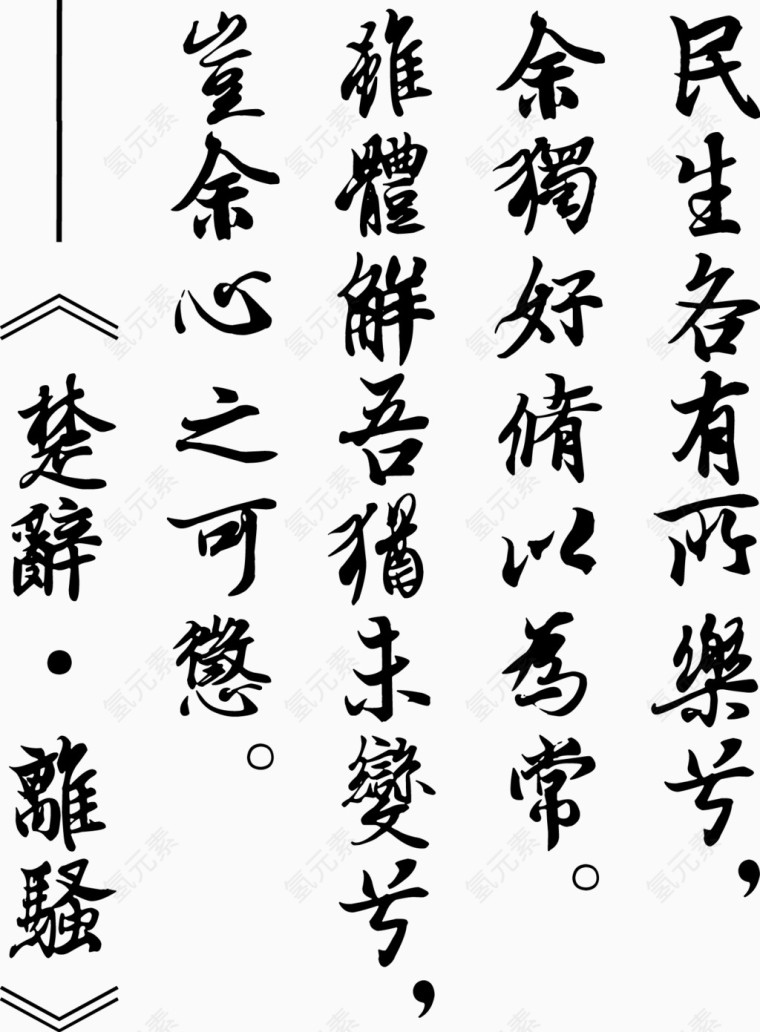 民生各有所樂兮，
余獨好脩以為常。
雖體解吾猶未變兮，
豈余心之可懲。
——《楚辭·離騷》
氢元素